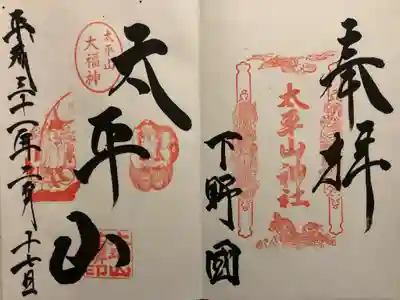 奉拝
太平山神社
下野國
太平山
太平山
大福神
平成三十一年二月十七日